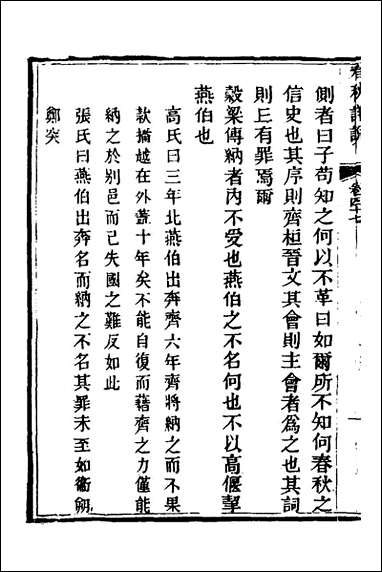 春秋詳說 卷四十七
側者曰子苟知之何以不革曰如爾所不知何春秋之
信史也其序則齊桓晉文其會則主會者爲之也其詞
則丘有罪焉爾
穀梁傳納者內不受也燕伯之不名何也不以高偃挈
燕伯也
高氏曰三年北燕伯出奔齊六年齊將納之而不果
款播越在外蓋十年矣不能自復而藉齊之力僅能
納之於別邑而已失國之難反如此
張氏曰燕伯出奔名而納之不名其罪未至如衞朔
鄭突